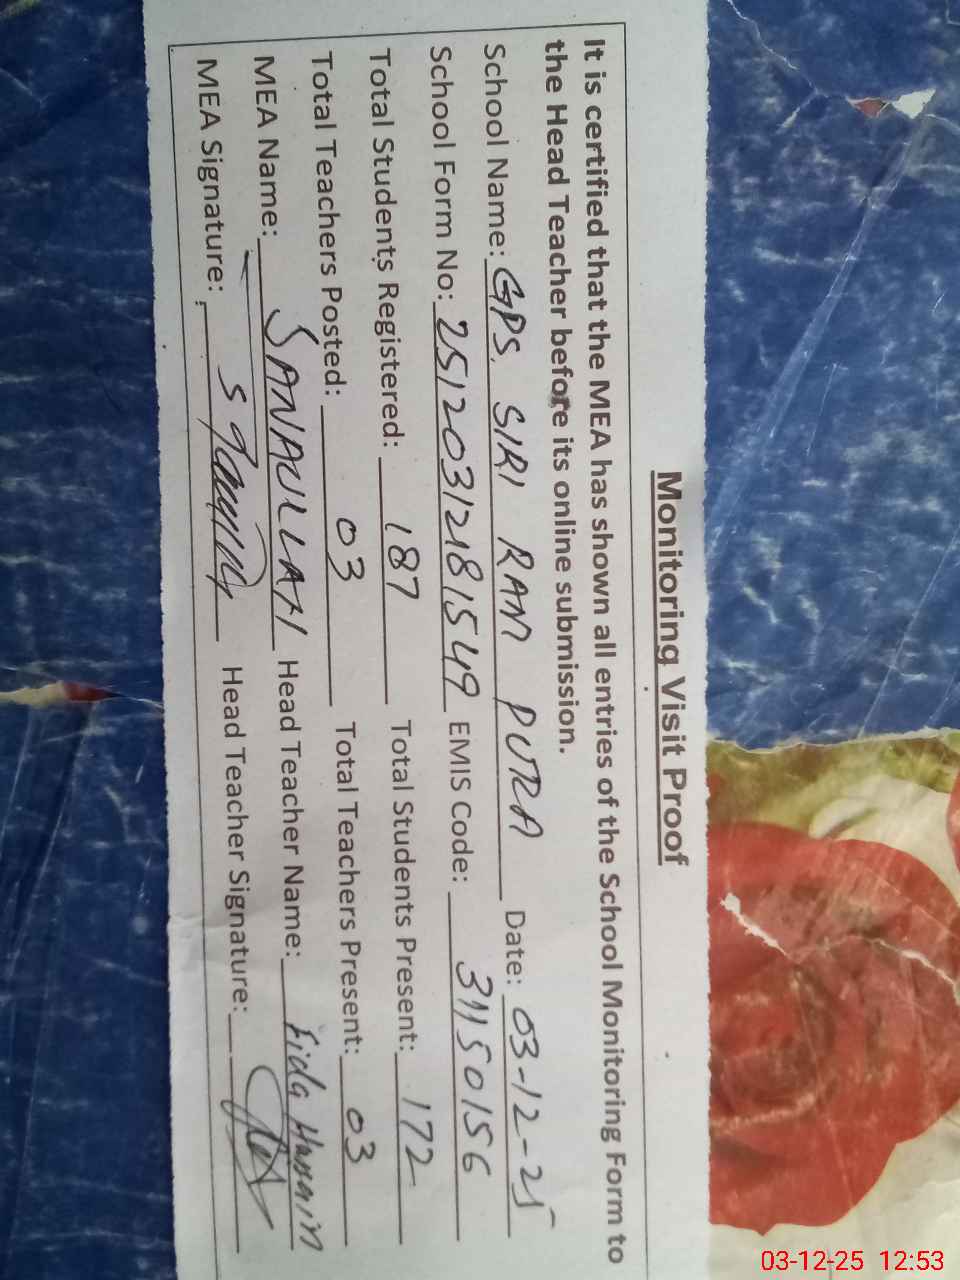 Monitoring Visit Proof
It is certified that the MEA has shown all entries of the School Monitoring Form to
the Head Teacher before its online submission.
School Name: GPS. SIRI RAM PURA Date: 03-12-25
School Form No: 25120312181549 EMIS Code: 31150156
Total Students Registered: 187 Total Students Present: 172
Total Teachers Posted: 03 Total Teachers Present: 03
MEA Name: SANAULLAH Head Teacher Name: Fida Hussain
MEA Signature: Head Teacher Signature:
03-12-25 12:53